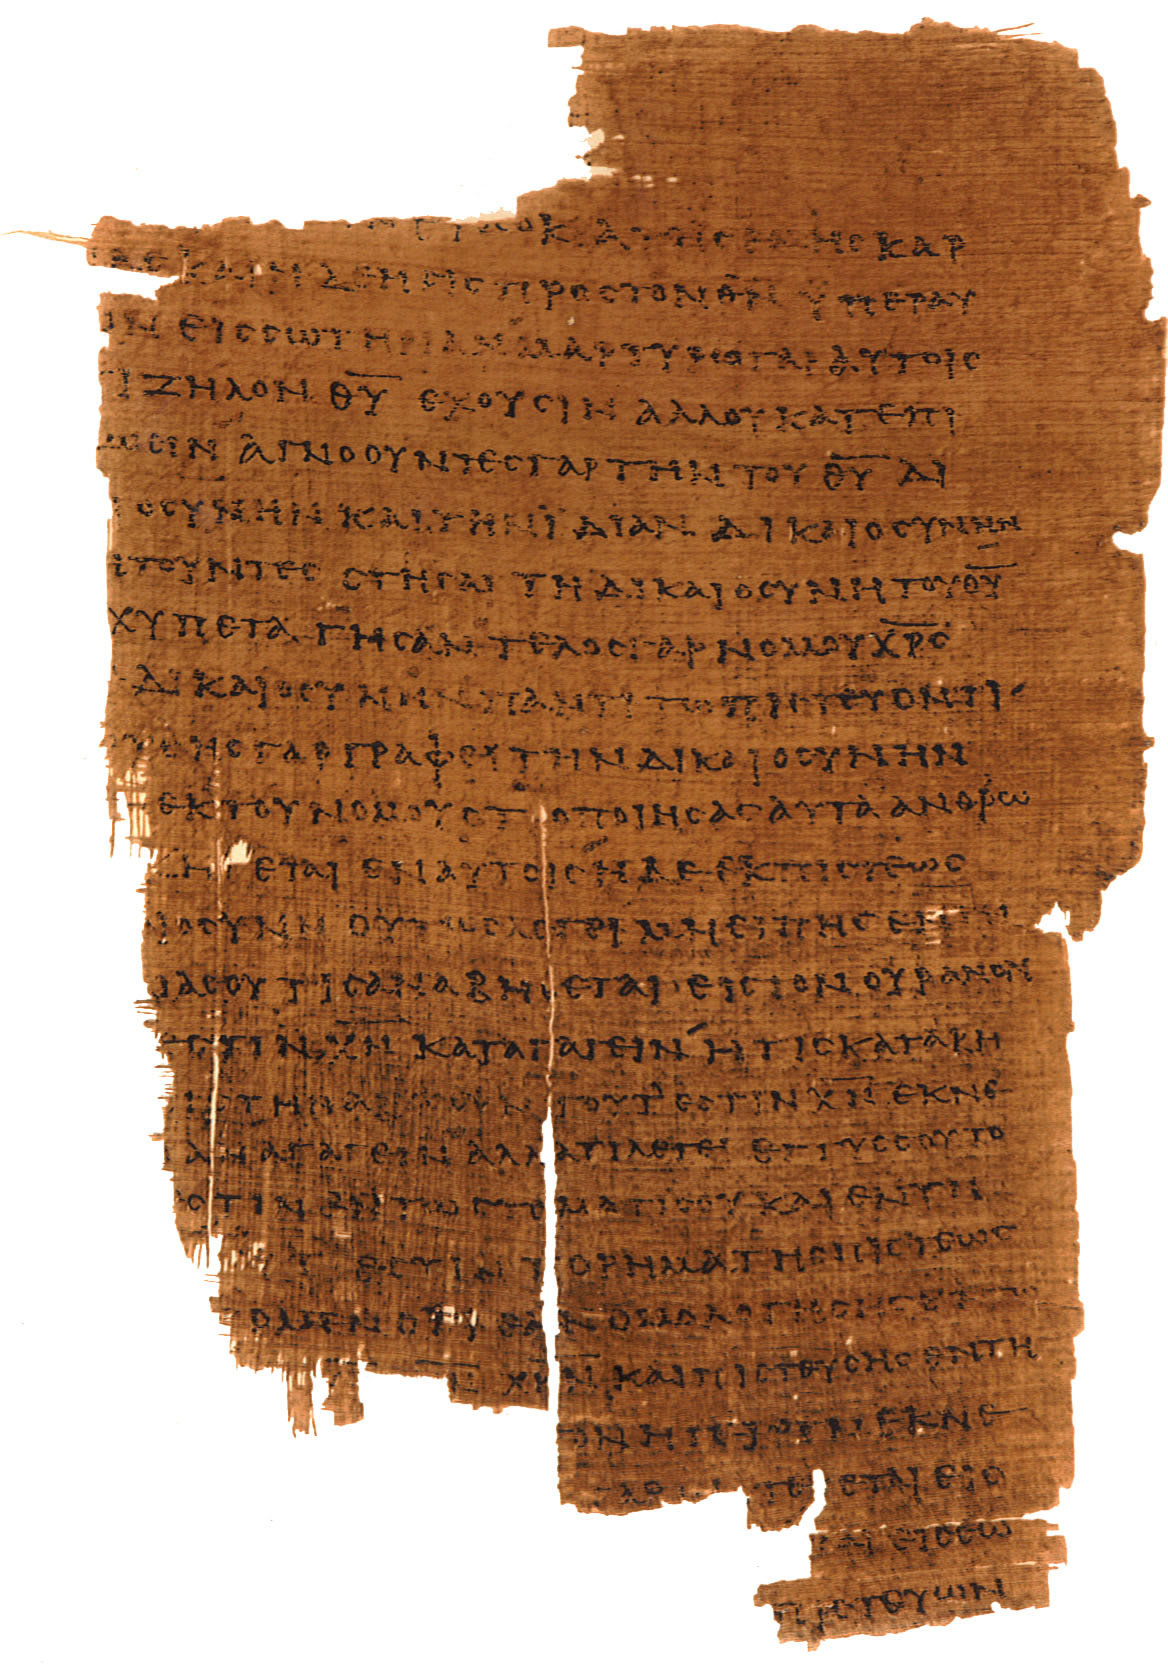 ΗϹ ΚΑΡ
ΙΑϹ ΚΑΙ Η ΔΕΗϹΙϹ ΠΡΟϹ ΤΟΝ Θ̅Ν̅ ΫΠΕΡ ΑΥ
ΩΝ ΕΙϹ ϹΩΤΗΡΙΑΝ ΜΑΡΤΥΡΩ ΓΑΡ ΑΥΤΟΙϹ
ΤΙ ΖΗΛΟΝ Θ̅Υ̅ ΕΧΟΥϹΙΝ ΑΛΛ ΟΥ ΚΑΤ ΕΠΙ
ΩϹΙΝ ΑΓΝΟΟΥΝΤΕϹ ΓΑΡ ΤΗΝ ΤΟΥ Θ̅Υ̅ ΔΙ
ΙΟϹΥΝΗΝ ΚΑΙ ΤΗΝ ΪΔΙΑΝ ΔΙΚΑΙΟϹΥΝΗΝ
ΗΤΟΥΝΤΕϹ ϹΤΗϹΑΙ ΤΗ ΔΙΚΑΙΟϹΥΝΗ ΤΟΥ Θ̅Υ̅
ΧΥΠΕΤΑΓΗϹΑΝ ΤΕΛΟϹ ΓΑΡ ΝΟΜΟΥ Χ̅Ρ̅Ϲ̅
ΔΙΚΑΙΟϹΥΝΗΝ ΠΑΝΤΙ ΤΩ ΠΙϹΤΕΥΟΝΤΙ
ΥϹΗϹ ΓΑΡ ΓΡΑΦΕΙ ΤΗΝ ΔΙΚΑΙΟϹΥΝΗΝ
ΕΚ ΤΟΥ ΝΟΜΟΥ ΟΤΙ Ο ΠΟΙΗϹΑϹ ΑΥΤΑ ΑΝΘΡΩ
ΖΗϹΕΤΑΙ ΕΝ ΑΥΤΟΙϹ Η ΔΕ ΕΚ ΠΙϹΤΕΩϹ
ΙΟϹΥΝΗ ΟΥΤΩϹ ΛΕΓΕΙ ΜΗ ΕΙΠΗϹ ΕΝ ΤΗ
ΙΑ ϹΟΥ ΤΙϹ ΑΝΑΒΗϹΕΤΑΙ ΕΙϹ ΤΟΝ ΟΥΡΑΝΟΝ
ΤΙΝ Χ̅Ν̅ ΚΑΤΑΓΑΓΕΙΝ Η ΤΙϹ ΚΑΤΑΒΗ
ΤΟΥΤ ΕϹΤΙΝ Χ̅Ν̅ ΕΚ ΝΕ
ΑΝΑΓΑΓΕΙΝ ΑΛΛΑ ΤΙ ΛΕΓΕΙ ΕΓΓΥϹ ϹΟΥ ΤΟ
ϹΤΙΝ ΕΝ ΤΩ ϹΤΟΜΑΤΙ ϹΟΥ ΚΑΙ ΕΝ ΤΗ
ΕϹΤΙΝ ΤΟ ΡΗΜΑ ΤΗϹ ΠΙϹΤΕΩϹ
ΟΜΕΝ ΟΤΙ ΕΑΝ ΟΜΟΛΟΓΗϹΗϹ
Χ̅Ρ̅Ν̅ ΚΑΙ ΠΙϹΤΕΥϹΗϹ ΕΝ ΤΗ
ΟΝ ΗΓΕΙΡΕΝ ΕΚ ΝΕ
ΕΤΑΙ ΕΙϹ
ΑΙ ΕΙϹ ϹΩ
ΠΙϹΤΕΥΩΝ